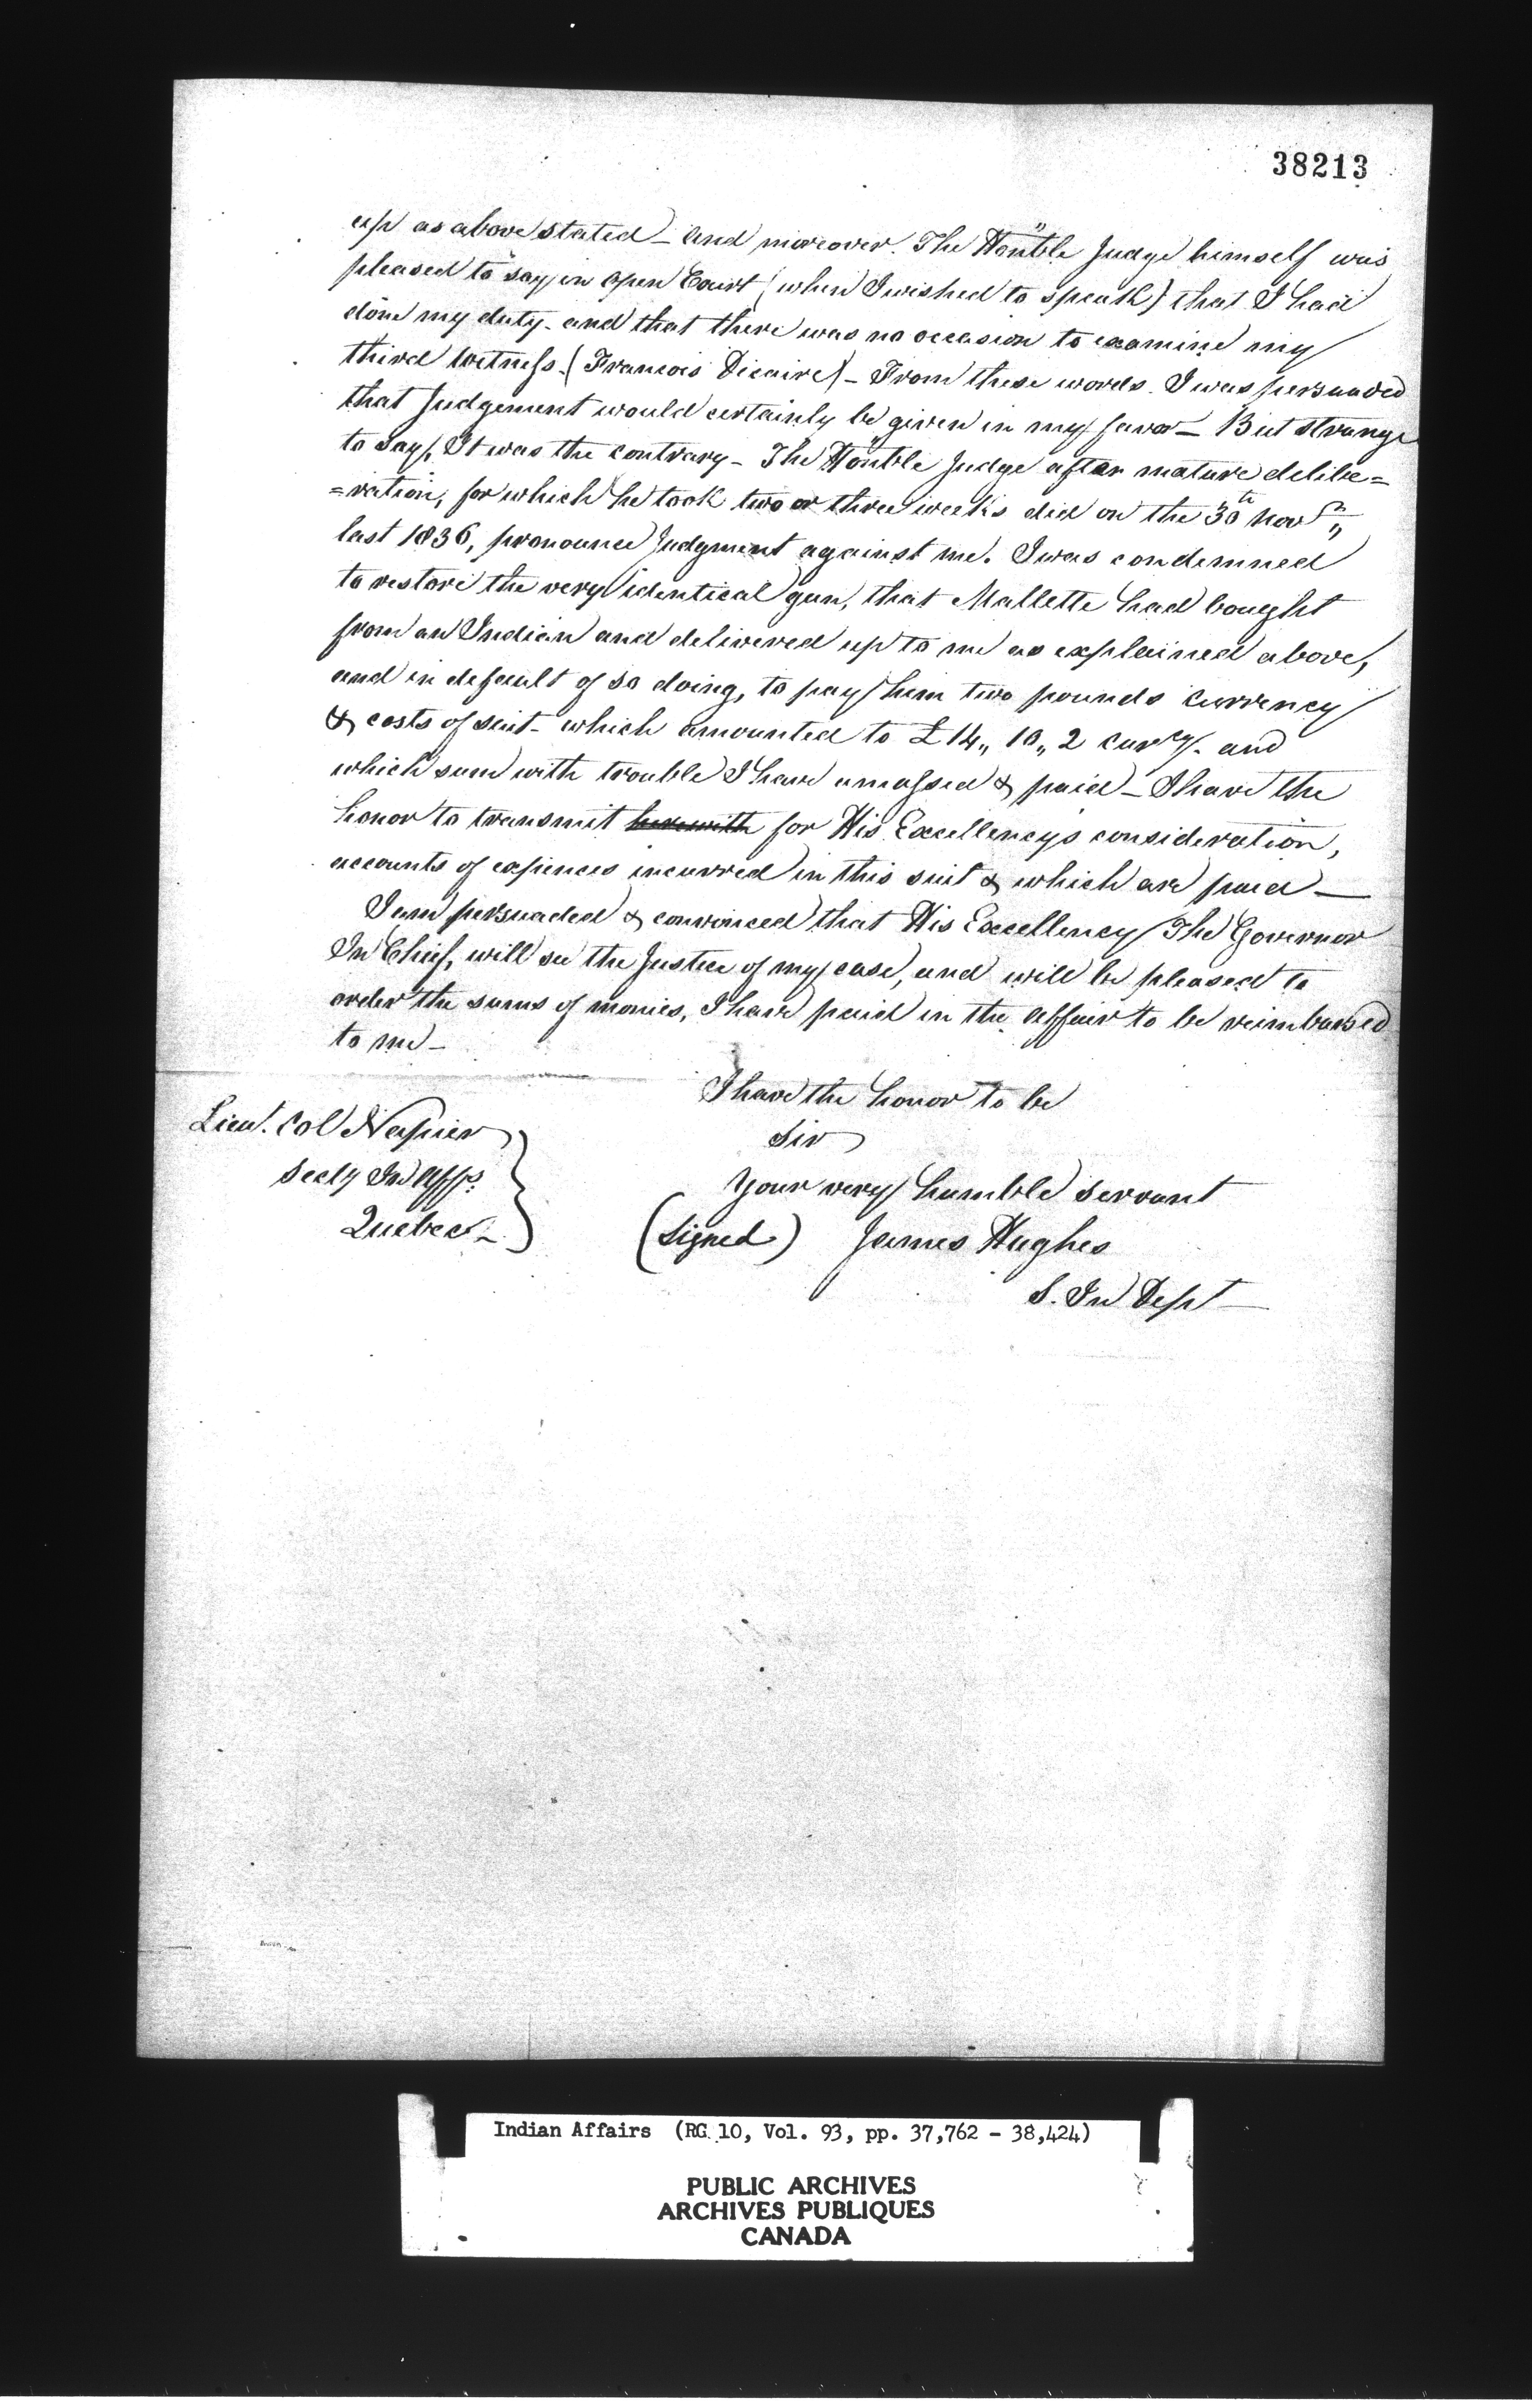 38213
up as above stated – and moreover. The Honble Judge himself was
pleased to say in open Court (when I wished to speak) that I had
done my duty – and that there was no occasion to examine my
third Witness – (Francois Dicaire) – From these words I was persuaded
that Judgement would certainly be given in my favor – But strange
to say, It was the contrary – The Honble Judge after mature delibe=
=ration, for which he took two or three weeks did on the 30th Novr,,
last 1836, pronounce Judgment against me. I was condemned
to restore the very identical gun, that Mallette had bought
from an Indian and delivered up to me as explained above,
and in default of so doing, to pay him two pounds currency
& costs of suit – which amounted to £14,, 10,, 2 curcy. and
which sum with trouble I have amassed & paid – I have the
honor to transmit herewith for His Excellencys consideration,
accounts of expences incurred in this suit & which are paid –
I am persuaded & convinced that His Excellency The Governor
In Chief, will see the Justice of my case, and will be pleased to
order the sums of monies, I have paid in the affair to be reimbursed
to me –
I have the honor to be
Sir
Your very humble servant
(Signed) James Hughes
S. In Dept
Lieut. Col Napier
Secty In Affs.
Quebec –
Indian Affairs (RG 10, Vol. 93, pp. 37,762 - 38,424)
PUBLIC ARCHIVES
ARCHIVES PUBLIQUES
CANADA